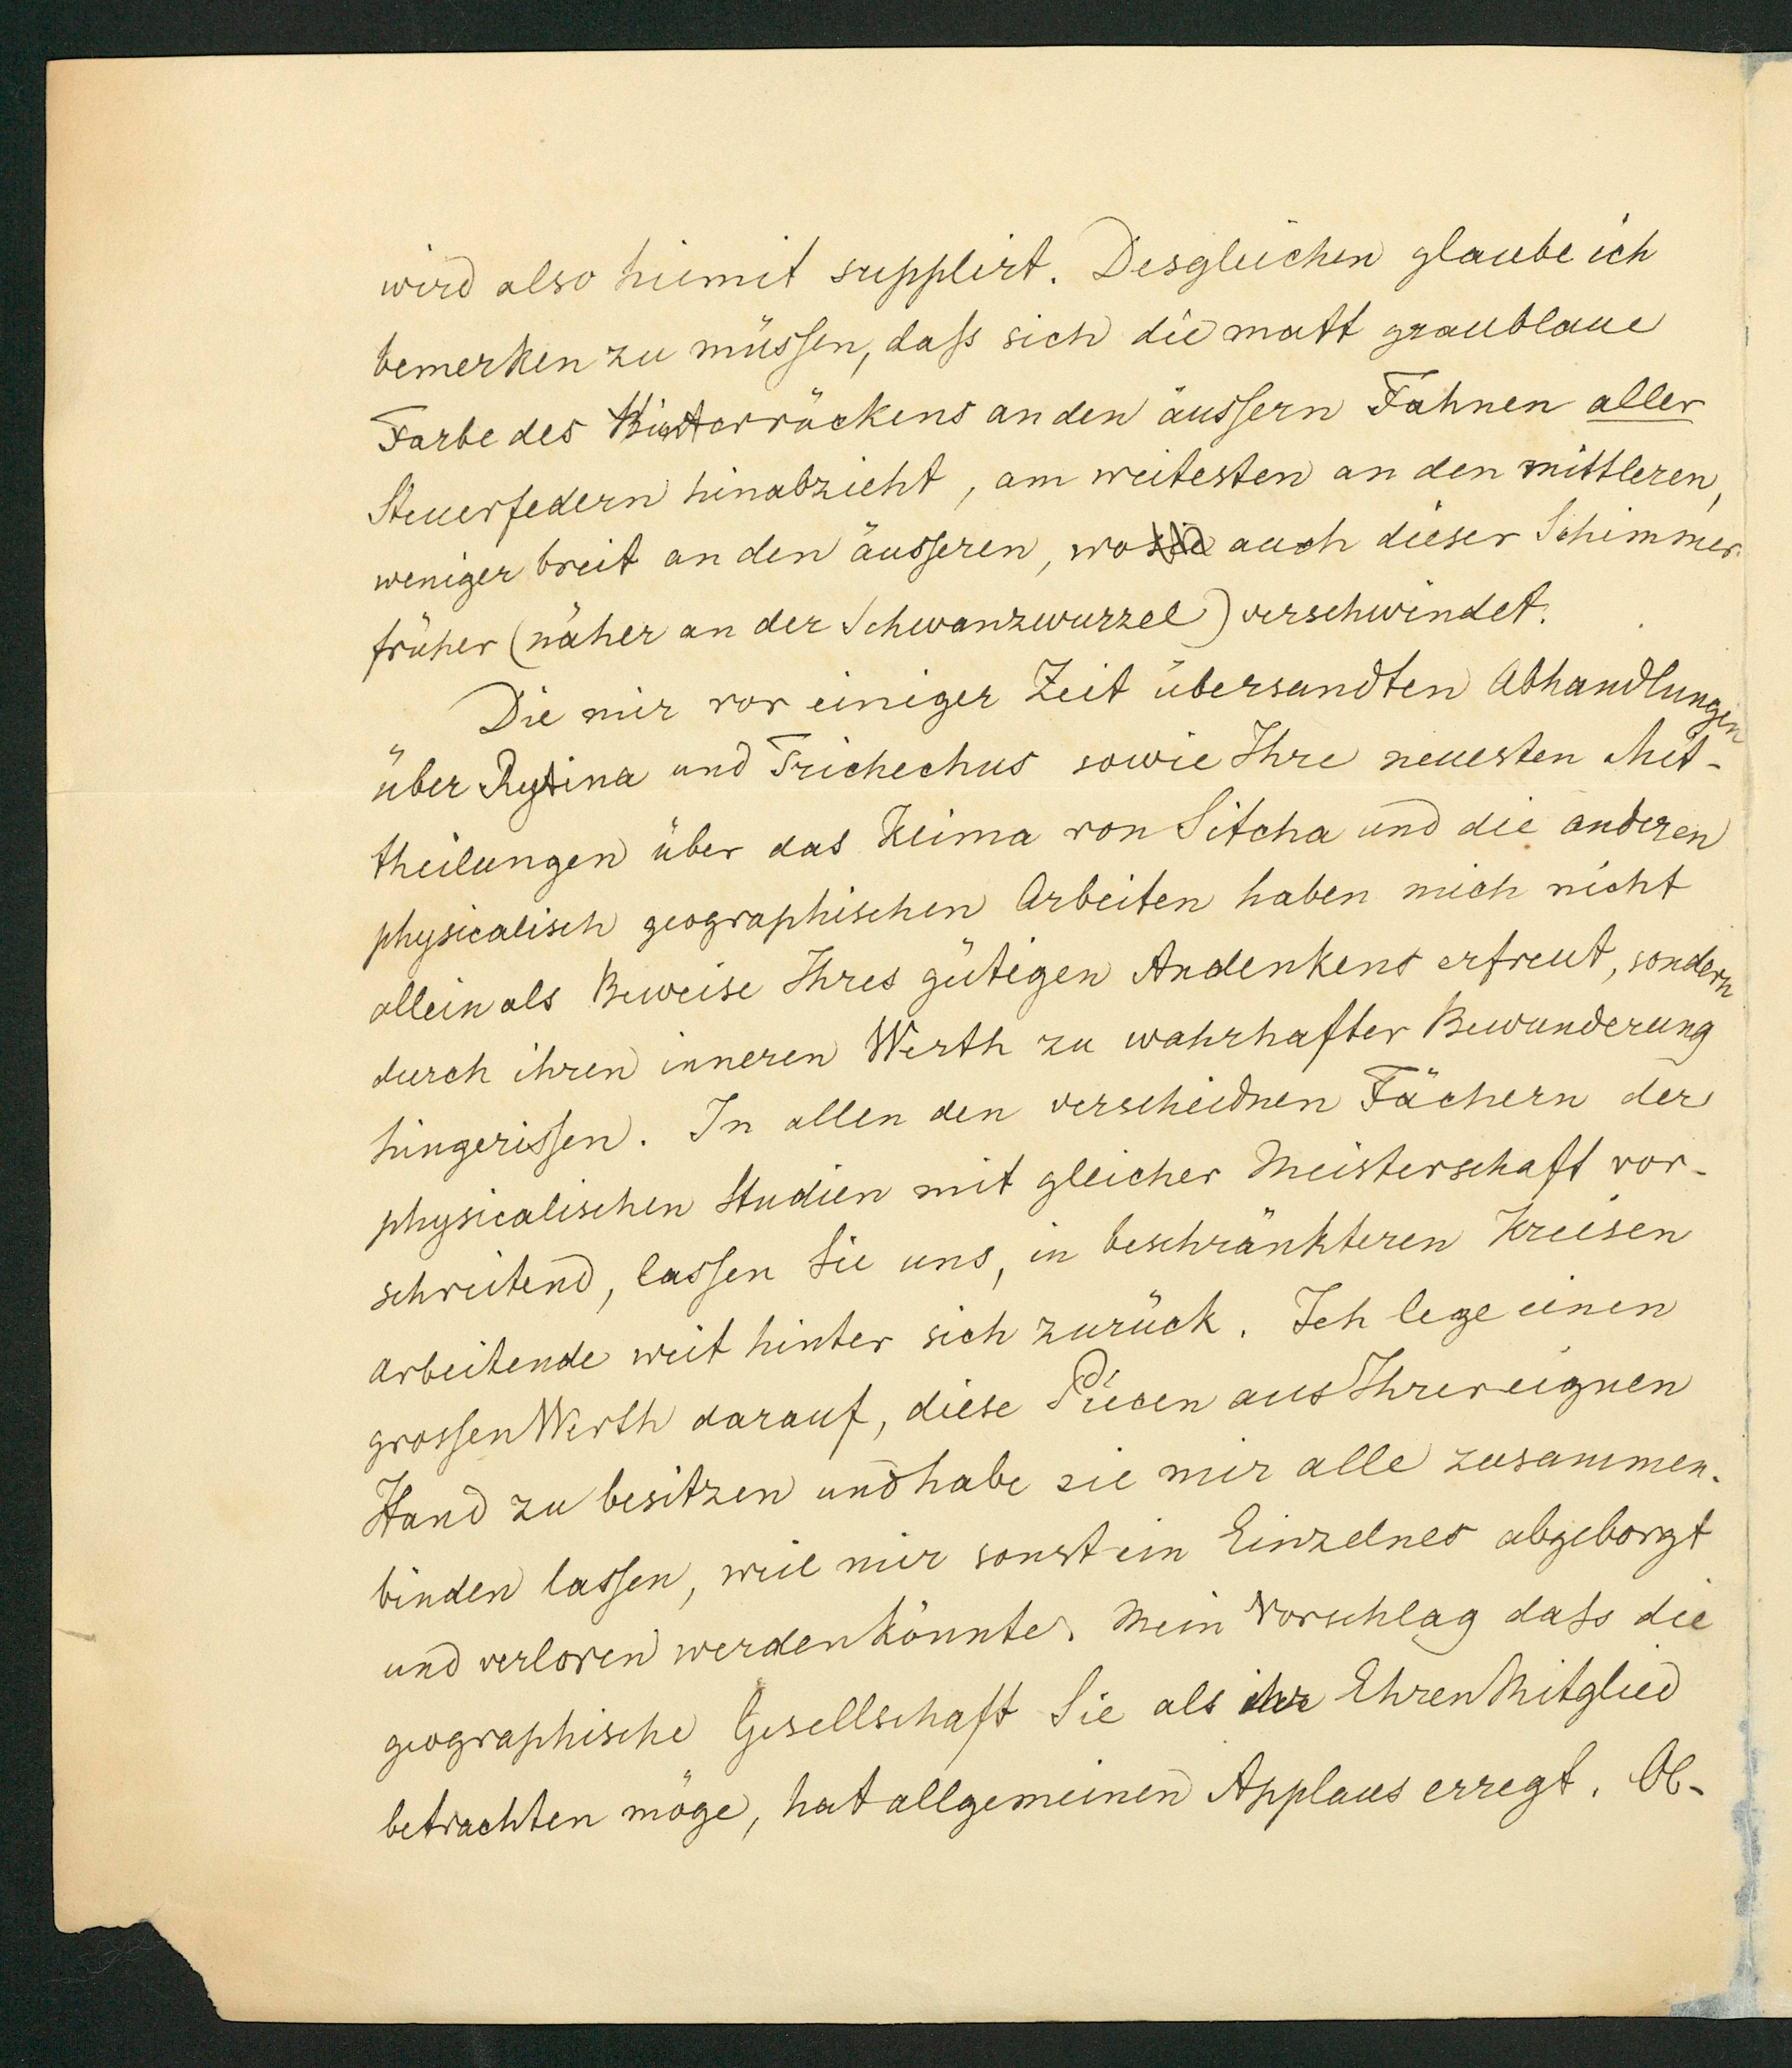 wird also hiemit supplirt. Desgleichen glaube ich
bemerken zu müssen, dass sich die matt graublaue
Farbe des Hinterrückens an den äussern Fahnen aller
Steuerfedern hinabzieht, am weitesten an den mittleren,
weniger breit an den äusseren, wo auch dieser Schimmer
früher (näher an der Schwanzwurzel) verschwindet.
Die mir vor einiger Zeit übersandten Abhandlungen
über Rytina und Trichechus sowie Ihre neuesten Mit-
theilungen über das Klima von Sitcha und die anderen
physicalisch geographischen Arbeiten haben mich nicht
allein als Beweise Ihres gütigen Andenkens erfreut, sondern
durch ihren inneren Werth zu wahrhafter Bewunderung
hingerissen. In allen den verschiednen Fächern der
physicalischen Studien mit gleicher Meisterschaft vor-
schreitend, lassen Sie uns, in beschränkteren Kreisen
arbeitende weit hinter sich zurück. Ich lege einen
grossen Werth darauf, diese Piecen aus Ihrer eignen
Hand zu besitzen und habe sie mir alle zusammen-
binden lassen, weil mir sonst ein Einzelnes abgeborgt
und verloren werden könnte. Mein Vorschlag dass die
geographische Gesellschaft Sie als ihr Ehren Mitglied
betrachten möge, hat allgemeinen Applaus erregt. Ob-